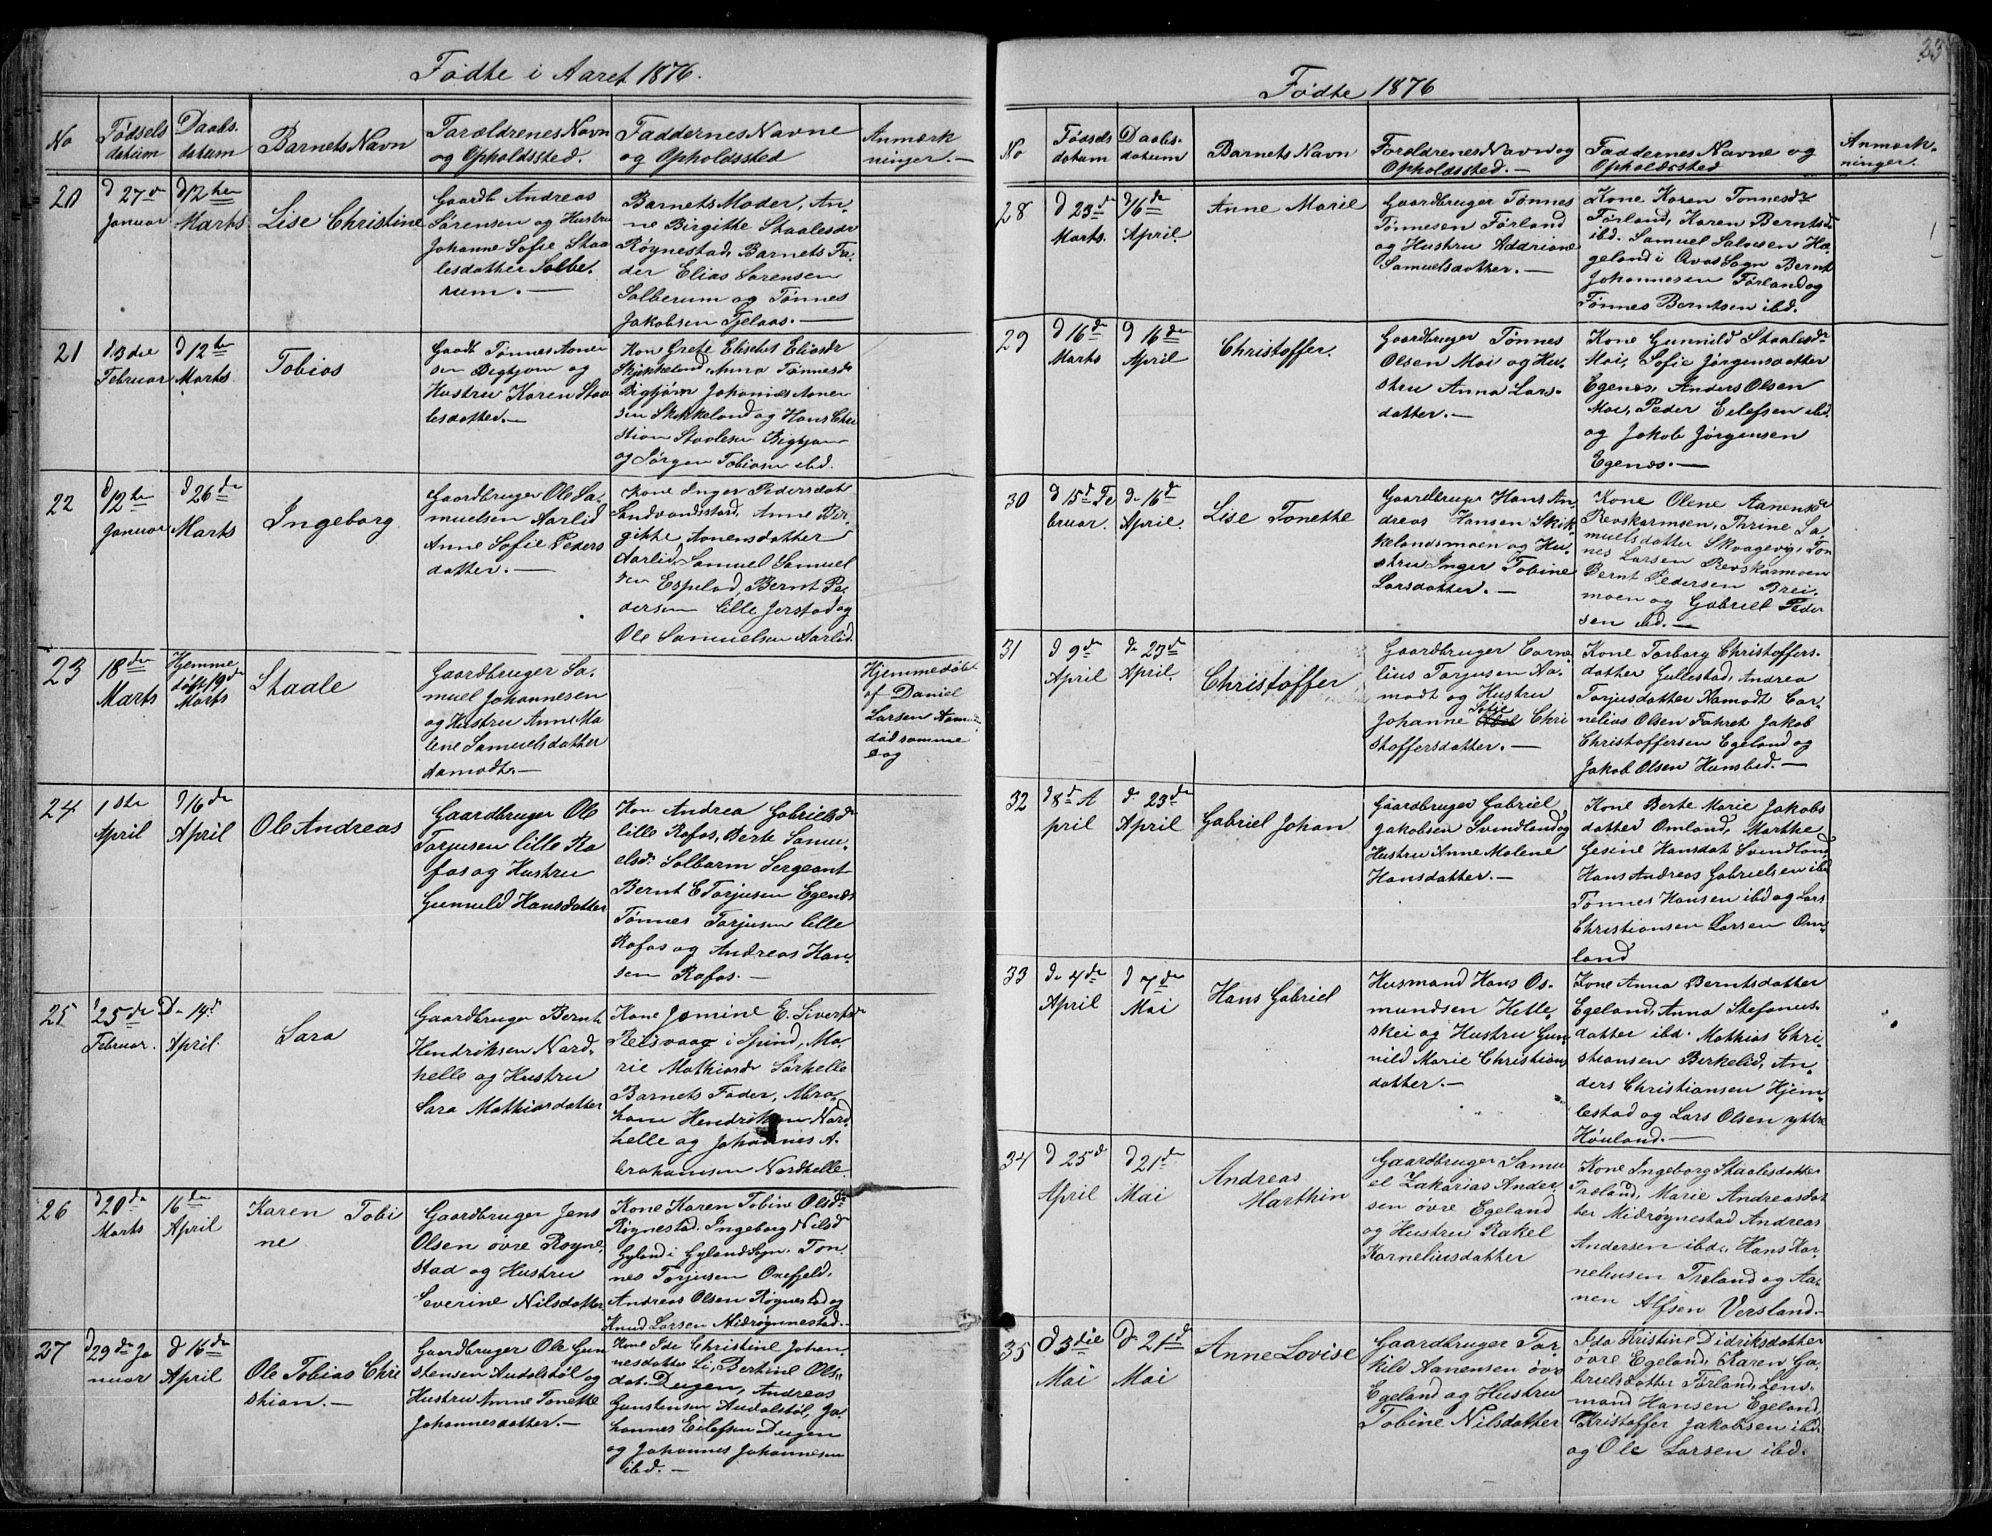 Fødte i Aaret 1876.
No
Fødsels
datum
Daabs.
datum
Barnets Navn
Forældrenes Navn
og Opholdssted.
Faddernes Navne
og Opholdssted
Anmærk
ninger.—
20
d 27de
Januar
d 12te
Marts
Lise Christine
Gaardb Andreas
Sørensen og Hustru
Johanne Sofie Staa
lesdatter Solbe.
rum.—
Barnets Moder, An-
ne Birgithe Staalesdr
Røynestad, Barnets Fa-
der Elias Sørensen
Solberum og Tønnes
Jakobsen Fjelaas.—
21
d. 3die
Februar
d 12te
Marts
Tobias
Gaardb Tønnes Aanen
sen Bigtjøn og
Hustru Karen Staa
lesdatter.—
Kon Grete Elisebet Eliasdr
Skikkeland, Anna Tønnesdr
Bigtjøn Johannes Aanen
sen Skikkeland og Hans Chri
stian Staalesen Bigtjøn
og Jørgen Tobiasen ibd.
22
d 12te
Januar
d 26de
Marts
Ingeborg
Gaardbruger Ole Sa-
muelsen Aarlid
Anne Sofie Peders
datter.—
Kone Inger Pedersdat
Sandvandsstad, Anne Bir-
gitte Aanensdatter
Aarlid, Samuel Samuel
sen Espelad, Bernt Pe-
dersen Lille Jerstad og
Ole Samuelsen Aarlid.
23
18de
Marts
Hjemme
døbt 19de
Marts
Staale
Gaardbruger Sa-
muel Johannesen
og Hustru Anne Ma
lene Samuelsdatter
Aamodt.—
Hjemmedøbt
af Daniel
Larsen
samme
Dag
24
1ste
April
d 16de
April
Ole Andreas
Gaardbruger Ole
Torjusen lille Ra
fos og Hustru
Gunnild Hansdatter
Kon Andrea Gabrielsdr
lille Rafos, Berte Samu-
elsdr Solbærm Sergeant
Bernt E Torjusen Egenæs
Tønnes Torjusen lille
Rafos og Andreas Han-
sen Rafos.—
25
d 25de
Februar.
D. 14d
April.
Sara
Gaardbruger Bernt
Hendriksen Nord-
helle og Hustru
Sara Mathiasdatter
Kone Jomine E. Sivertsdr
Reisvaag i Spind, Ma-
rie Mathiasdr Sørhelle
Barnets Fader, Abra
ham Hendriksen Nord-
helle og Johannes A-
brahamsen Nordhelle
26
d 20de
Marts
16de
April
Karen Tobi
ne
Gaardbruger Jens
Olsen øvre Røyne
stad og Hustru
Severine Nilsdatter
Kone Karen Tobine Olsdr
Røynestad. Ingeborg Nilsd
Gyland i Gylands Sogn. Tøn-
nes Torjusen Oxefjeld,
Andreas Olsen Røynestad og
Knud Larsen Midrøynestad.
27
d 29de Ja
nuar
d 16de
April
Ole Tobias Chri
stian.—
Gaardbruger Ole Gun
stensen Audalstøl og
Hustru Anne Tonette
Johannesdatter.—
Kone Ide Christine Johan-
nesdatter Li, Bertine Ols-
dat. Dugen, Andreas
Gunstensen Audalstøl, Jo
hannes Eilefsen Dugen
og Johannes Johannesen
ibd.—
33
Fødte 1876
No
Fødsels
datum
Daabs-
datum
Barnets Navn
Forældrenes Navn og
Opholdssted.—
Faddernes Navne og
Opholdssted
Anmærk-
ninger.
28
d 23de
Marts.
d 16de
April.
Anne Marie
Gaardbruger Tønnes
Tønnesen Førland
og Hustru Addriane
Samuelsdatter.—
Kone Karen Tønnesdr
Førland, Karen Berntsdr
ibd. Samuel Salvesen Hæ
geland i Qvas Sogn Bernt
Johannesen Førland og
Tønnes Berntsen ibd.
29
d 16de
Marts
d 16de
April
Christoffer.
Gaardbruger Tønnes
Olsen Moi og Hu-
stru Anna Lars-
datter.—
Kone Gunnild Staalesdr
Moi, Sofie Jørgensdatter
Egenæs, Anders Olsen
Moi, Peder Eilefsen ibd.
og Jakob Jørgensen
Egenæs.—
30
d 15d Fe
bruar.
d. 16d
April.
Lise Tonette
Gaardbruger Hans An-
dreas Hansen Skik
kelandsmoen og Hu-
stru Inger Tobine
Larsdatter.—
Kone Olene Aanensdr
Revskarmoen, Thrine Sa-
muelsdatter Skvagevig, Tøn
nes Larsen Revskarmoen
Bernt Pedersen Brei-
moen og Gabriel Peder
sen ibd.—
31
d 9de
April
d. 23de
April.
Christoffer
Gaardbruger Corne-
lius Torjusen Aa-
modt og Hustru
Sofie
Johanne Chri
stoffersdatter.—
Kone Torborg Christoffers-
datter Gullestad, Andrea
Torjusdatter Aamodt Cor-
nelius Olsen Fahret Jakob
Christoffersen Egeland og
Jakob Olsen Hunsbed.—
32
d 8d A
pril
d. 23de
April
Gabriel Johan
Gaardbruger Gabriel
Jakobsen Svindland og
Hustru Anne Malene
Hansdatter.—
Kone Berte Marie Jakobs
datter Omland, Marthe
Gesine Hansdat Svindland
Hans Andreas Gabrielsen ibd
Tønnes Hansen ibd og Lars
Christiansen Larsen Om-
land
33
d. 4de
April
d 7de
Mai
Hans Gabriel
Husmand Hans Os-
mundsen Helle-
skei og Hustru Gun-
nild Marie Christians
datter.—
Kone Anna Berntsdatter
Egeland, Anna Stefanus-
datter ibd. Mathias Chri-
stiansen Birkelid, An-
ders Christiansen Hjem-
lestad og Lars Olsen yttre
Høuland.—
34
d 25d
April
d 21de
Mai
Andreas
Marthin
Gaardbruger Samu
el Zakarias Ander
sen øvre Egeland
og Hustru Rakel
Korneliusdatter
Kone Ingeborg Staalesdatter
Træland, Marie Andreasdat
ter Midrøynestad Andreas
Andersen ibd. Hans Kor-
neliusen Træland og Aa-
nen Alfsen Versland.—
35
d 3die
Mai
D. 21d
Mai
Anne Lovise
Gaardbruger Tor
kild Aanensen øvr
Egeland og Hustru
Tobine Nilsdatter
Ida Kristine Didriksdatter
øvre Egeland, Karen Ga-
brielsdatter Førland, Lens-
mand Hansen Egeland,
Kristoffer Jakobsen ibd.
og Ole Larsen ibd.